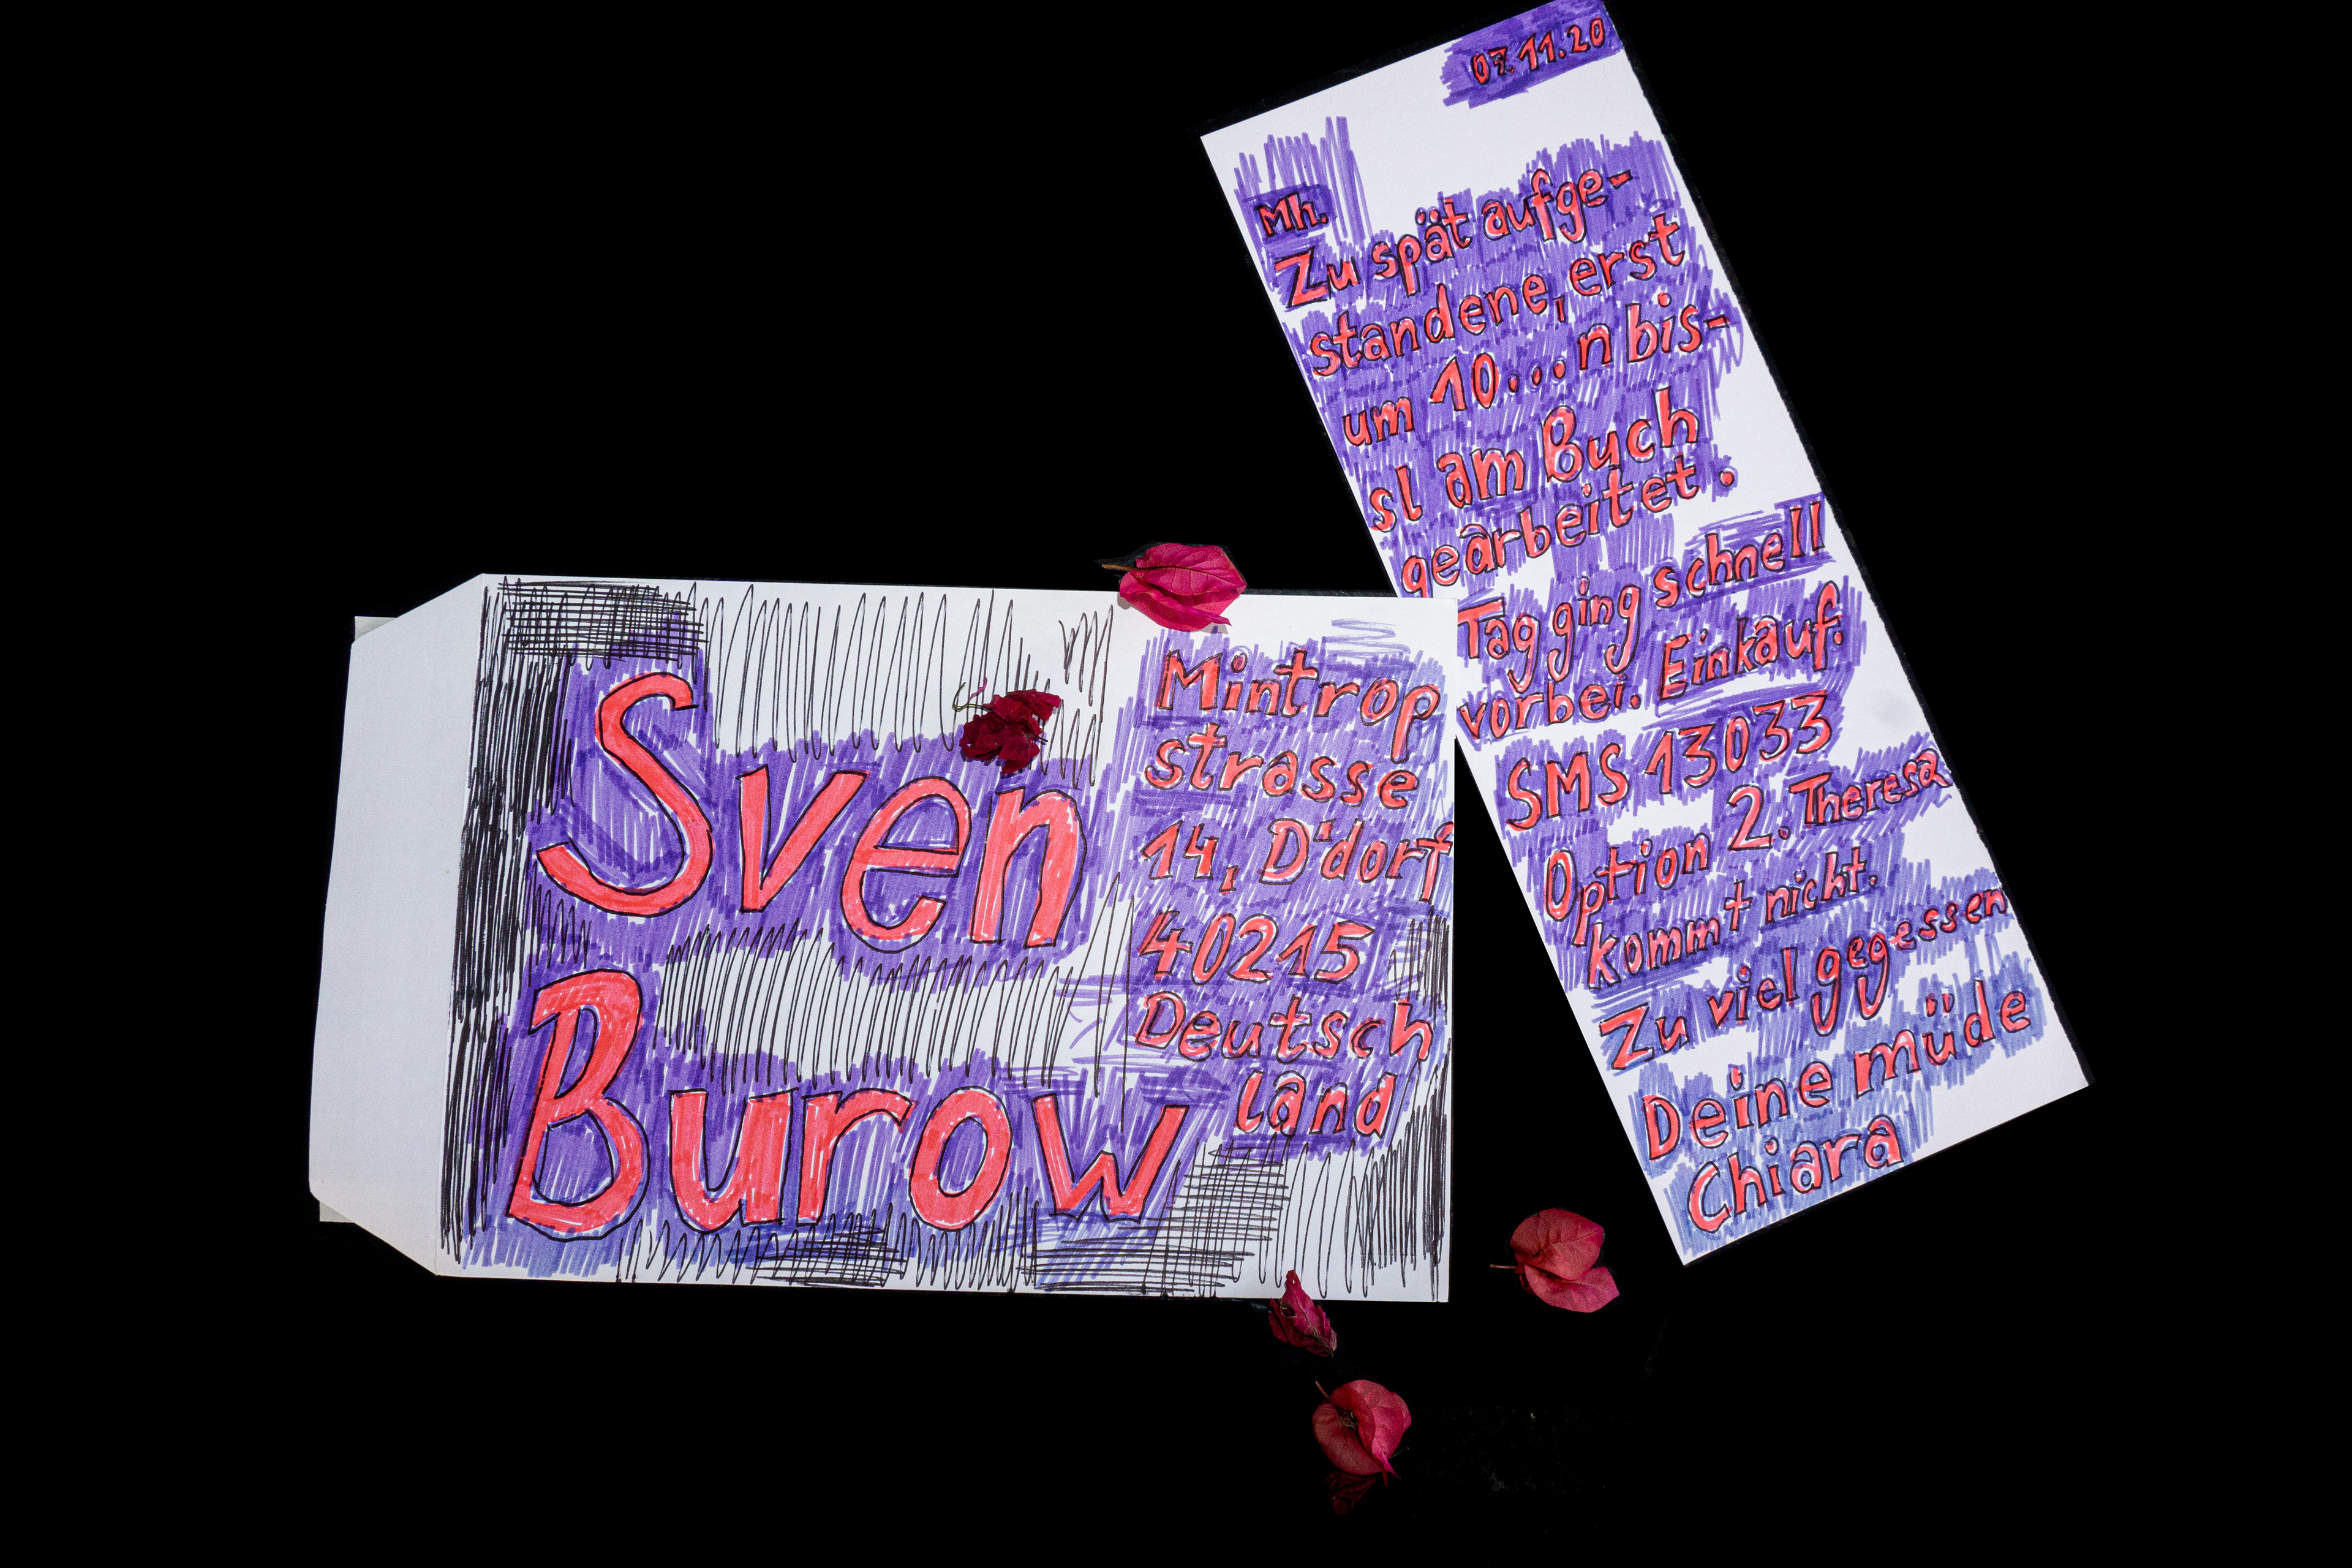 Sven
Burow
Mintrop
strasse
14, D'dorf
40215
Deutsch
land
07.11.20
Mh.
Zu spät aufge-
standene, erst
um 10...n bis-
sl am Buch
gearbeitet.
Tag ging schnell
vorbei. Einkauf.
SMS 13033
Option 2. Theresa
kommt nicht.
Zu viel gegessen
Deine müde
Chiara